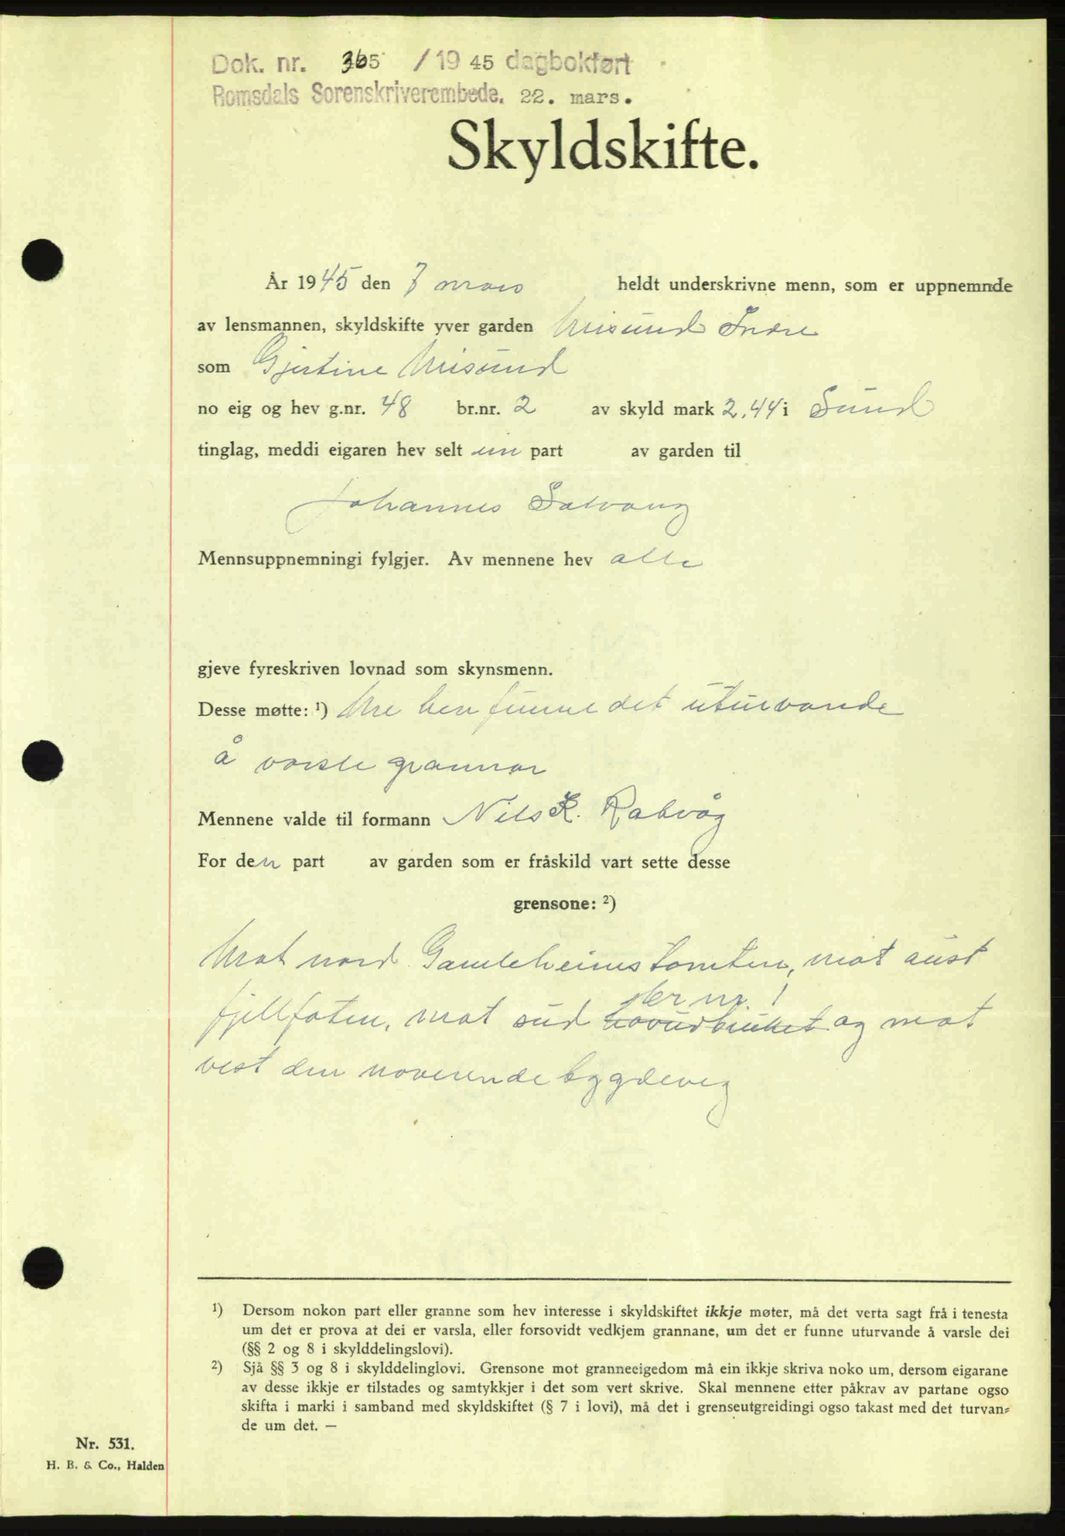 Dok. nr. 365 / 19 45 dagbokført
Romsdals Sorenskriverembede, 22. mars.
Skyldskifte.
År 1945 den 7 mars heldt underskrivne menn, som er uppnemnde
av lensmannen, skyldskifte yver garden Misund Indre
som Gjertine Misund
no eig og hev g.nr. 48 br.nr. 2 av skyld mark 2.44 i Sund
tinglag, meddi eigaren hev selt ein part av garden til
Johannes Solvang
Mennsuppnemningi fylgjer. Av mennene hev alle
gjeve fyreskriven lovnad som skynsmenn.
Desse møtte: ¹) Me hev funne det uturvande
å varsle grannar
Mennene valde til formann Nils K. Rabvåg
For den part av garden som er fråskild vart sette desse
grensone: ²)
Mot nord Gamleheimstomten, mot aust
br nr. 1
fjellfoten, mot sud hovudbruket og mot
vest den noverende bygdeveg
¹) Dersom nokon part eller granne som hev interesse i skyldskiftet ikkje møter, må det verta sagt frå i tenesta
um det er prova at dei er varsla, eller forsovidt vedkjem grannane, um det er funne uturvande å varsle dei
(§§ 2 og 8 i skylddelingslovi).
²) Sjå §§ 3 og 8 i skylddelinglovi. Grensone mot granneeigedom må ein ikkje skriva noko um, dersom eigarane
av desse ikkje er tilstades og samtykkjer i det som vert skrive. Skal mennene etter påkrav av partane ogso
skifta i marki i samband med skyldskiftet (§ 7 i lovi), må det i grenseutgreidingi ogso takast med det turvan=
de um det. —
Nr. 531.
H. B. & Co., Halden